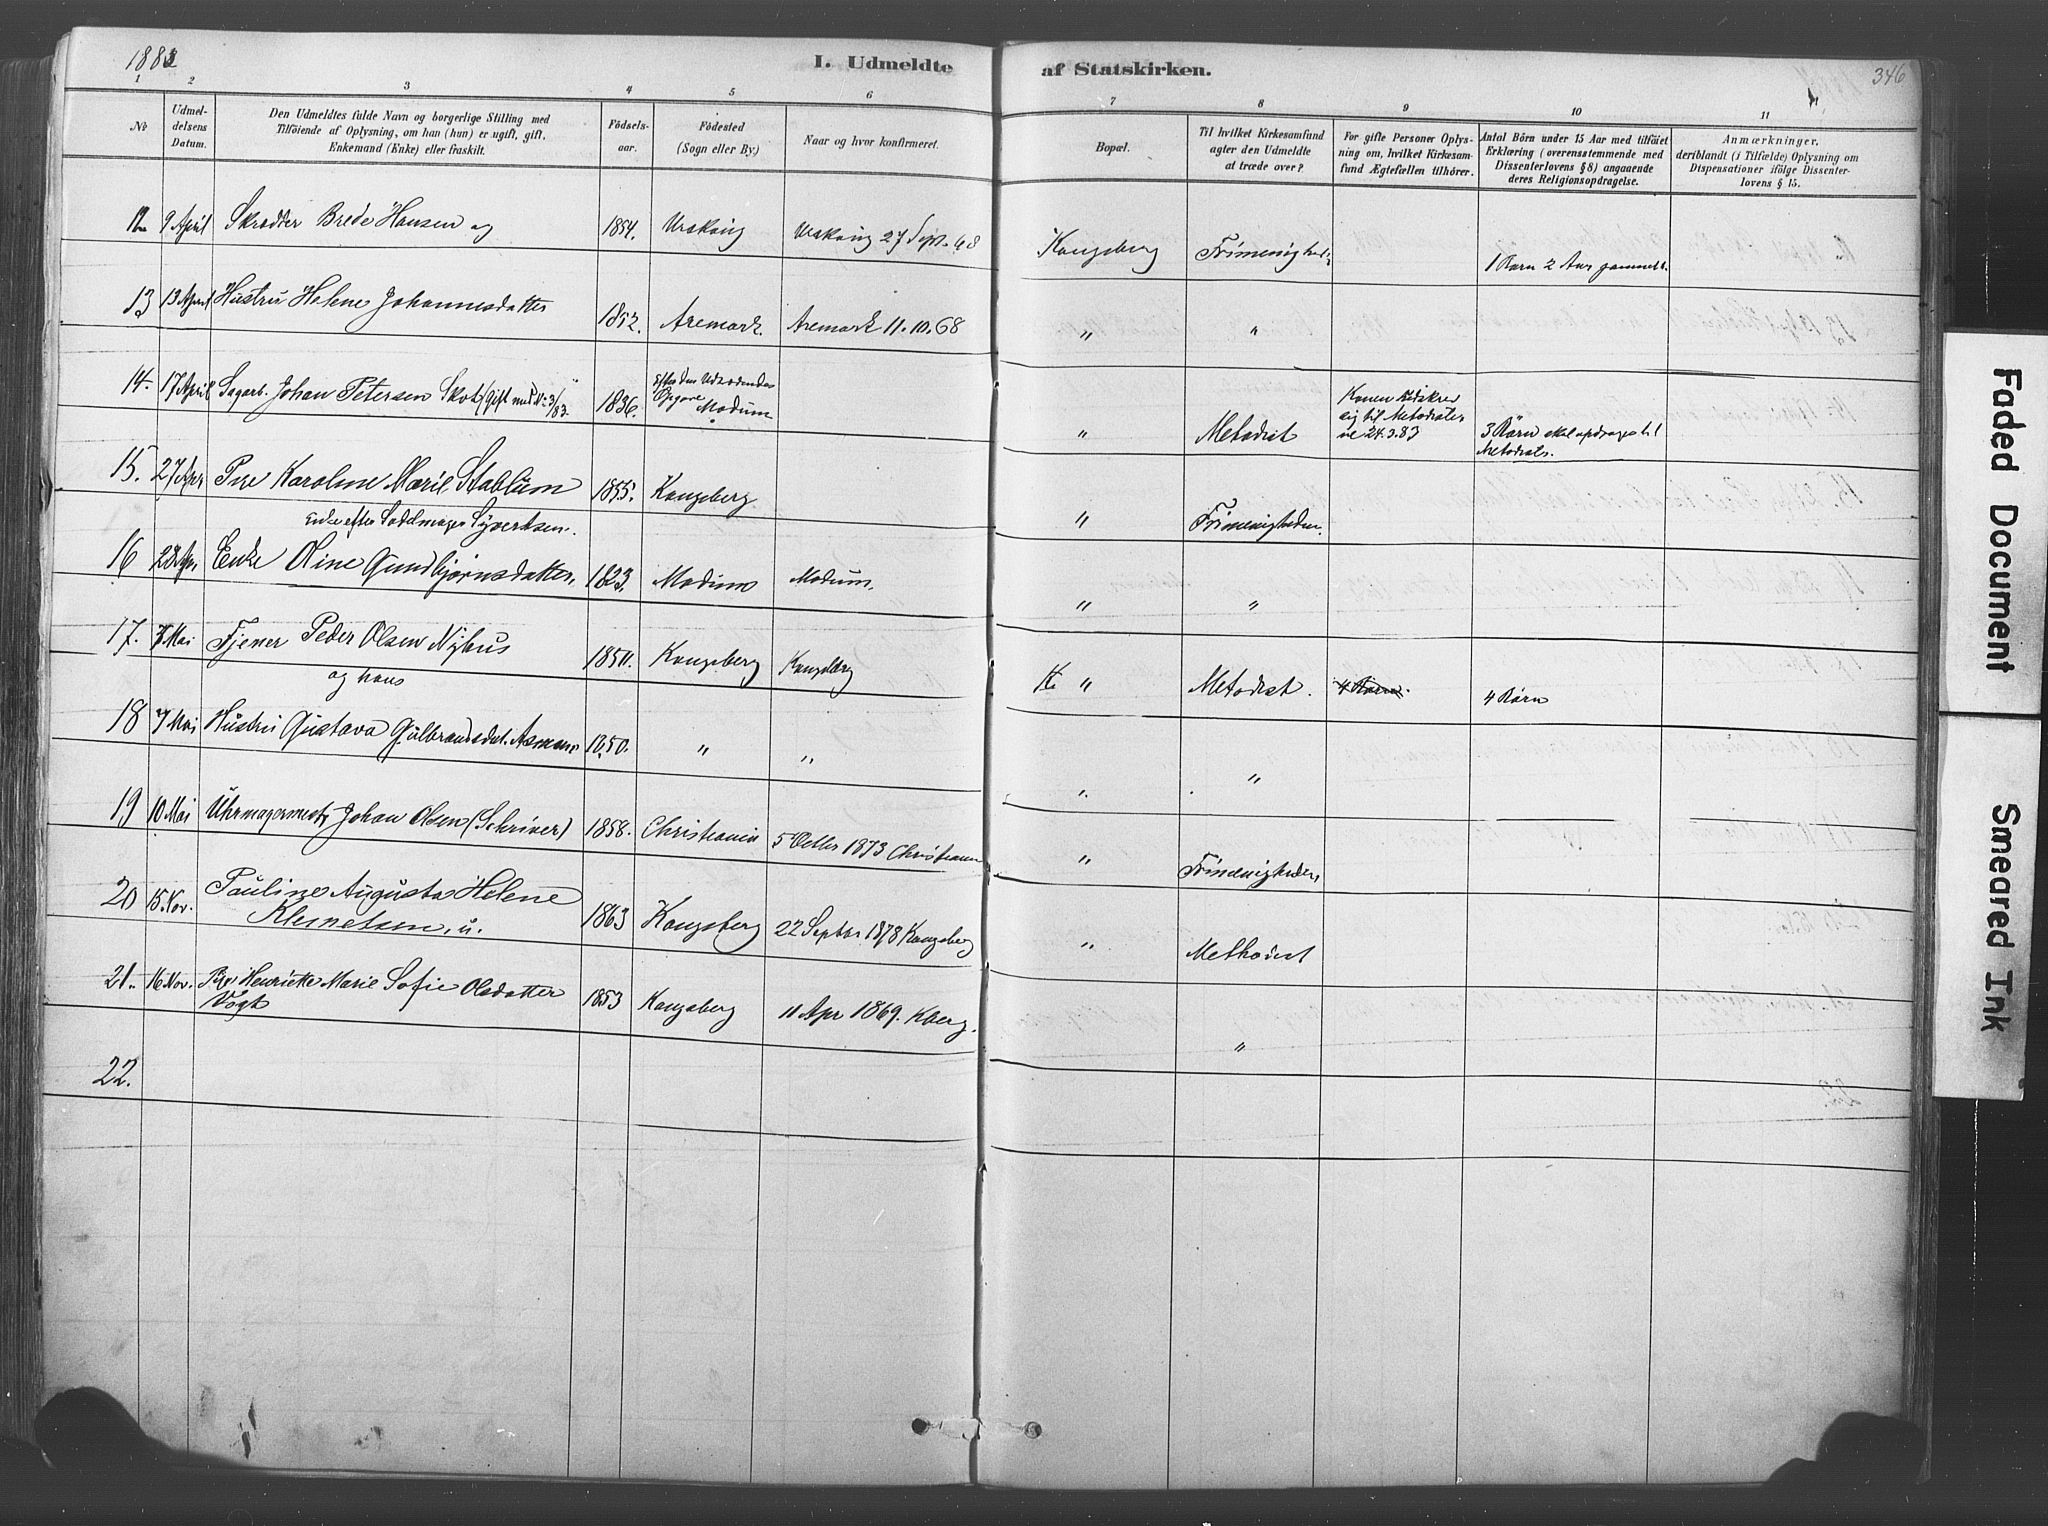 1883
I. Udmeldte af Statskirken.
346
1 2 3 4 5 6 7 8 9 10 11
No
Udmeldelsens Datum.
Den Udmeldtes fulde Navn og borgerlige Stilling med
Tilföiende af Oplysning, om han (hun) er ugift, gift,
Enkemand (Enke) eller fraskilt.
Födselsaar.
Födested
(Sogn eller By.)
Naar og hvor konfirmeret.
Bopæl.
Til hvilket Kirkesamfund
agter den Udmeldte
at træde over?
For gifte Personer Oplysning
om, hvilket Kirkesamfund
Ægtefællen tilhörer.
Antal Börn under 15 Aar med tilföiet
Erklæring (overensstemmende med
Dissenterlovens § 8) angaaende
deres Religionsopdragelse.
Anmærkninger,
deriblandt (i Tilfælde) Oplysning om
Dispensationer ifölge Dissenterlovens § 15.
12 9 April Skrædder Brede Hansen og 1854. Urskoug Urskoug 27 Sept. 68 Kongsberg Frimenighed. 1 Barn 2 Aar gammelt.
13 13 April Hustru Helene Johannesdatter 1852. Aremark. Aremark 11.10.68 " "
14. 17 April Sagarb. Johan Petersen Skot (gift med No 3/83. 1836. Efter den Udtrædendes Opgave Modum " Metodist Konen udskrev sig til Metodisterne 24.3.83 3 Börn skal opdrages til Metodister.
15. 27 Apr Pige Karoline Marie Stablum 1855. Kongsberg " Frimenigheden.
Enke efter Sadelmager Syvertsen.
16 28 Apr Enke Oline Gundbjörnsdatter, 1823. Modum Modum. " "
17. 7 Mai Tjener Peder Olsen Nyhus 1850. Kongsberg Kongsberg K. " Metodist. 4 Börn. 4 Börn
og hans
18 7 Mai Hustru Gustava Gulbrandsdat. Asmans 1850. " " " "
19 10 Mai Uhrmagermest. Johan Olsen (Schriver) 1858. Christiania 5 Octbr 1873 Christiania " Frimenigheden
20 15 Nov. Pauline Augusta Helene
Klemetsen, u. 1863 Kongsberg 22 Septbr 1878 Kongsberg " Methodist
21. 16 Nov. Pige Henriette Marie Sofie Olsdatter
Vogt 1853 Kongsberg 11 Apr 1869. Kberg. "
22.
Faded Document
Smeared Ink